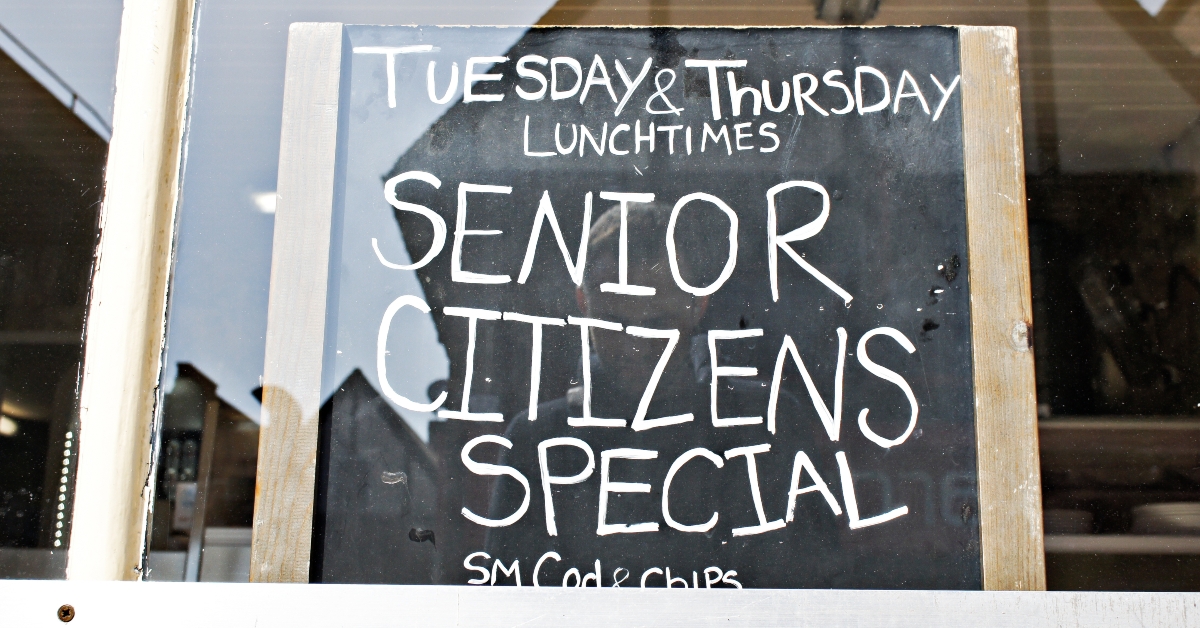 TUESDAY & ThURSDAY
LUNCHTIMES
SENIOR
CITIZENS
SPECIAL
SM Cod & ChIPS